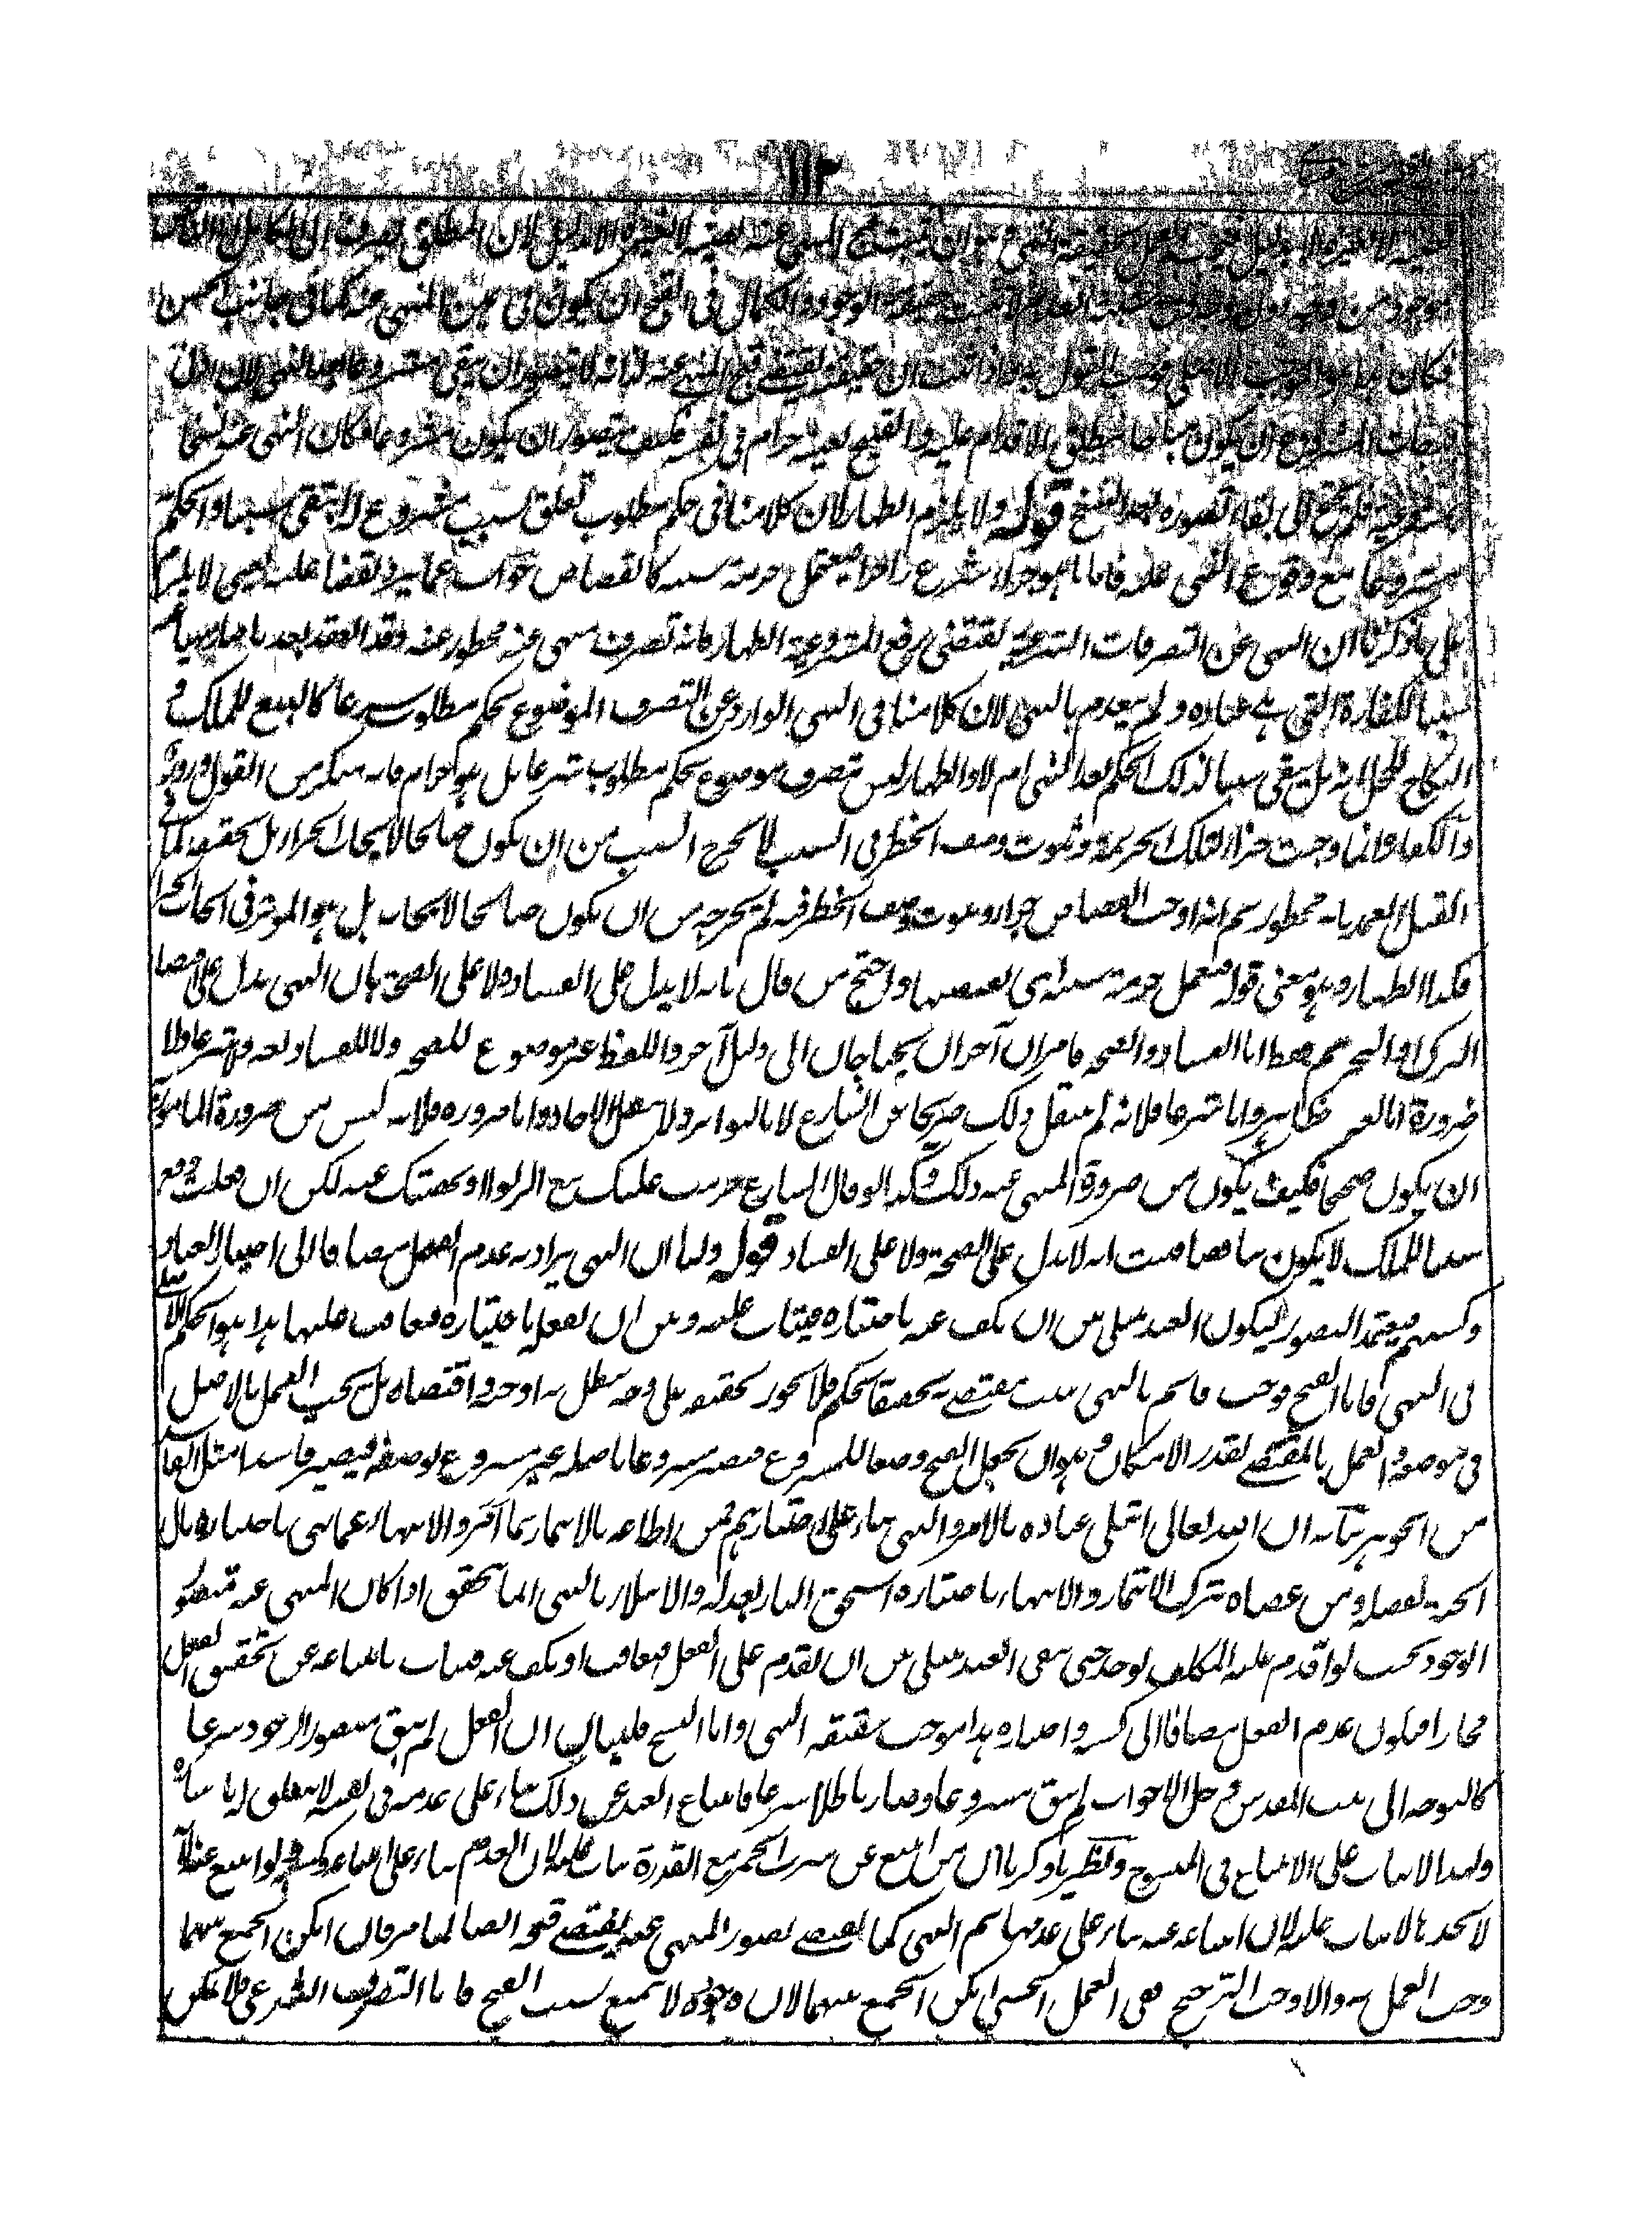 ١١٣
لان المطلق ينصرف الى الكامل
موجود من وجه دون وجه والكمال فى القبح ان يكون فى عين المنهى عنه كما فى جانب الحسن
فكان هذا هو الموجب الاصلى فوجب القول به واذا ثبت ان حقيقته تقتضى قبح المنهى عنه لذاته لا يتصور ان يبقى مشروعا بعد النهى لان ادنى
درجات المشروع ان يكون مباحا مطلق الاقدام عليه والقبيح لعينه حرام فى نفسه فكيف يتصور ان يكون مشروعا فكان النهى عنه نسخا
لمشروعيته بعد النسخ قوله ولا يلزم الظهار لان كلامنا فى حكم مطلوب تعلق بسبب مشروع له ايبقى سببا والحكم
مشروعا مع وقوع النهى عليه فاما ما هو جزاء شرع زاجرا فيعتمد حرمة سببه كالقصاص جواب عما يرد نقضا عليه يعنى لا يلزم
على ما ذكرنا ان النهى عن التصرفات الشرعية يقتضى رفع المشروعية الظهار فانه تصرف منهى عنه محظور عنه وقد انعقد بعد ما صار منهيا عنه
سببا للكفارة التى هى عبادة ولم ينعدم بالنهى لان كلامنا فى النهى الوارد عن التصرف الموضوع لحكم مطلوب شرعا كالبيع للملك و
النكاح للحل انه هل يبقى سببا لذلك الحكم بعد النهى ام لا والظهار ليس بتصرف موضوع لحكم مطلوب شرعا بل هو حرام فانه منكر من القول وزور
والكفارة انما وجبت جزاء لتلك الجريمة وثبوت وصف الحظر فى السبب لا يخرج السبب من ان يكون صالحا لايجاب الجزاء بل يحققه كما فى
القتل العمد فانه محظور ثم انه اوجب القصاص جزاء وثبوت وصف الحظر فيه لم يخرجه من ان يكون صالحا لايجابه بل هو المؤثر فى ايجاب الجزاء
فكذا الظهار وهو معنى قوله فيعتمد حرمة سببه اى يقتضيها واحتج من قال بانه لا يدل على الفساد ولا على الصحة بان النهى يدل على اقتضاء
الترك او التحريم فقط اما الفساد والصحة فامران آخران يحتاجان الى دليل آخر واللفظ غير موضوع للصحة ولا للفساد لغة ولا شرعا ولا
ضرورة اما لغة فظاهر واما شرعا فلانه لم ينقل ذلك صريحا من الشارع لا بالتواتر ولا بنقل الآحاد واما ضرورة فلانه ليس من ضرورة المأمور به
ان يكون صحيحا فكيف يكون من ضرورة المنهى عنه ذلك وكذا لو قال الشارع حرمت عليك بيع الربوا او نهيتك عنه لكن ان فعلت وقع
سببا للملك لا يكون متناقضا فثبت انه لا يدل على الصحة ولا على الفساد قوله ولنا ان النهى يراد به عدم الفعل مضافا الى اختيار العباد
وكسبهم فيعتمد التصور ليكون العبد مبتلى بين ان يكف عنه باختياره فيثاب عليه وبين ان يفعله باختياره فيعاقب عليها هذا هو الحكم الاصلى
فى النهى فاما القبح فوصف قائم بالنهى يثبت مقتضى به تحقيقا لحكمه فلا يجوز تحقيقه على وجه يبطل به ما اوجبه واقتضاه بل يجب العمل بالاصل
فى موضعه والعمل بالمقتضى بقدر الامكان وهو ان يجعل القبح وصفا للمشروع فيصير مشروعا باصله غير مشروع بوصفه فيصير فاسدا مثل الفاسد
من الجوهر بيانه ان الله تعالى ابتلى عباده بالامر والنهى بناء على اختيارهم فمن اطاعه بالائتمار بما امر والانتهاء عما نهى باختياره نال
الجنة بفضله ومن عصاه بترك الائتمار والانتهاء باختياره استحق النار بعدله والابتلاء بالنهى انما يتحقق اذا كان المنهى عنه متصور
الوجود بحيث لو اقدم عليه المكلف لوجد حتى يبقى العبد مبتلى بين ان يقدم على الفعل فيعاقب او يكف عنه فيثاب بامتناعه عن تحقيق الفعل
مختارا فيكون عدم الفعل مضافا الى كسبه واختياره هذا موجب حقيقة النهى واما النسخ فلبيان ان الفعل لم يبق متصور الوجود شرعا
كالتوجه الى بيت المقدس وحل الاخوات لم يبق مشروعا وصار باطلا شرعا فامتناع العبد عن ذلك بناء على عدمه فى نفسه لا تعلق له باختياره
ولهذا لا يثاب على الامتناع فى المنسوخ ونظير ما ذكرنا ان من امتنع عن شرب الخمر مع القدرة يثاب عليه لان العدم بناء على امتناعه وكسبه ولو امتنع عنه لانه
لا يجدها لا يثاب عليه لان امتناعه عنه بناء على عدمها ثم النهى كما يقتضى تصور المنهى عنه يقتضى قبحه ايضا لما مر فان امكن الجمع بينهما
وجب العمل به والا وجب الترجيح ففى الفعل الحسى امكن الجمع بينهما لان وجوده لا يمتنع بسبب القبح فاما التصرف الشرعى فلا يمكن